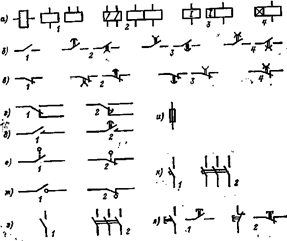 а) 1 2 3 4
б) 1 2 3 4
в) 1 2 3 4
г) 1 2
д) 1 2
и)
е) 1 2
ж) 1 2
к) 1 2
з) 1 2
л) 1 2